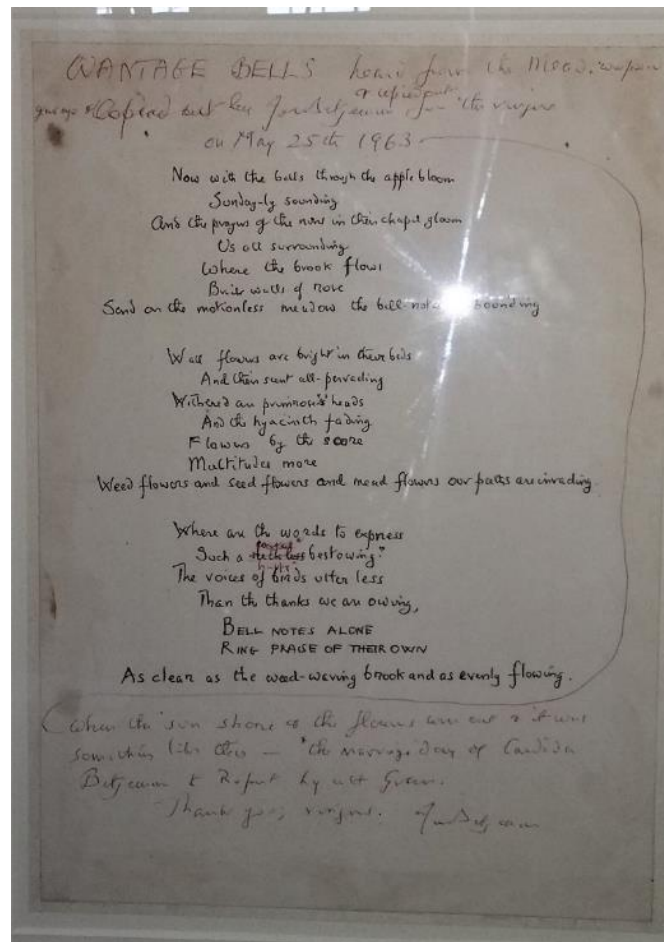 WANTAGE BELLS heard from the Mead.
& copied out
Copied out by John Betjeman for the
on May 25th 1963
Now with the bells through the apple bloom
Sunday-ly sounding
And the prayers of the nuns in their chapel gloom
Us all surrounding
Where the brook flows
Brick walls of rose
Send on the motionless meadow the bell-notes bounding
Wall flowers are bright in their beds
And their scent all-pervading
Withered are primroses heads
And the hyacinth fading
Flowers by the score
Multitudes more
Weed flowers and seed flowers and mead flowers our paths are invading.
Where are the words to express
Such a reckless bestowing?
The voices of birds utter less
Than the thanks we are owing,
BELL NOTES ALONE
RING PRAISE OF THEIR OWN
As clear as the weed-waving brook and as evenly flowing.
When the sun shone & the flowers were out & it was
something like this — the marriage day of Candida
Betjeman & Rupert Lycett Green.
Thank you, John Betjeman